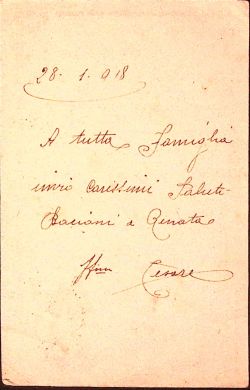 28. 1. 918
A tutta Famiglia
invio carissimi saluti
Bacioni a Renata
Cesare